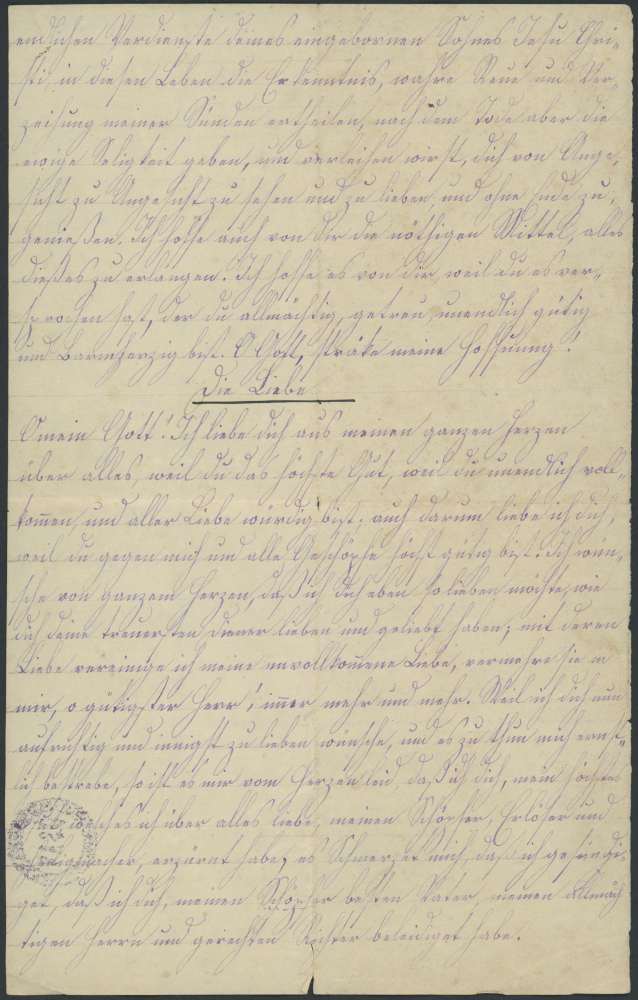 endlichen Verdienste deines eingebornen Sohnes Jesu Chri-
sti in diesen Leben die Erkenntnis, wahre Reue und Ver-
zeihung meiner Sünden ertheilen, nach dem Tode aber die
ewige Seligkeit geben, und verleihen wirst, dich von Ange-
sicht zu Angesicht zu sehen und zu lieben und ohne Ende zu
genießen. Ich hoffe auch von dir die nöthigen Mittel, alles
dießes zu erlangen. Ich hoffe es von dir, weil du es ver-
sprochen hast, der du allmächtig, getreu, unendlich gütig
und Barmherzig bist. O Gott, stärke meine Hoffnung!
Die Liebe
O mein Gott! Ich liebe dich aus meinen ganzen Herzen
über alles, weil du das höchste Gut, weil du unendlich voll-
kom̅en, und aller Liebe würdig bist; auch darum liebe ich dich,
weil du gegen mich und alle Geschöpfe höchst gütig bist. Ich wün-
sche von ganzem Herzen, daß ich dich eben so lieben möchte, wie
dich deine treuersten Diener lieben und geliebt haben; mit deren
Liebe vereinige ich meine unvollkom̅ene Liebe, vermehre sie in
mir, o gütigster Herr! im̅er mehr und mehr. Weil ich dich nun
aufrichtig und innigst zu lieben wünsche, und es zu thun mich ernst-
lich bestrebe, so ist es mir vom Herzen leid, daß ich dich, mein höchstes
welches ich über alles liebe, meinen Schöpfer, Erlöser und
erzürnt habe, es Schmerzet mich, daß ich gesündi-
get, daß ich dich, meinen Schöpfer besten Vater, meinen Allmäch
tigen Herrn und gerechten Richter beleidiget habe.